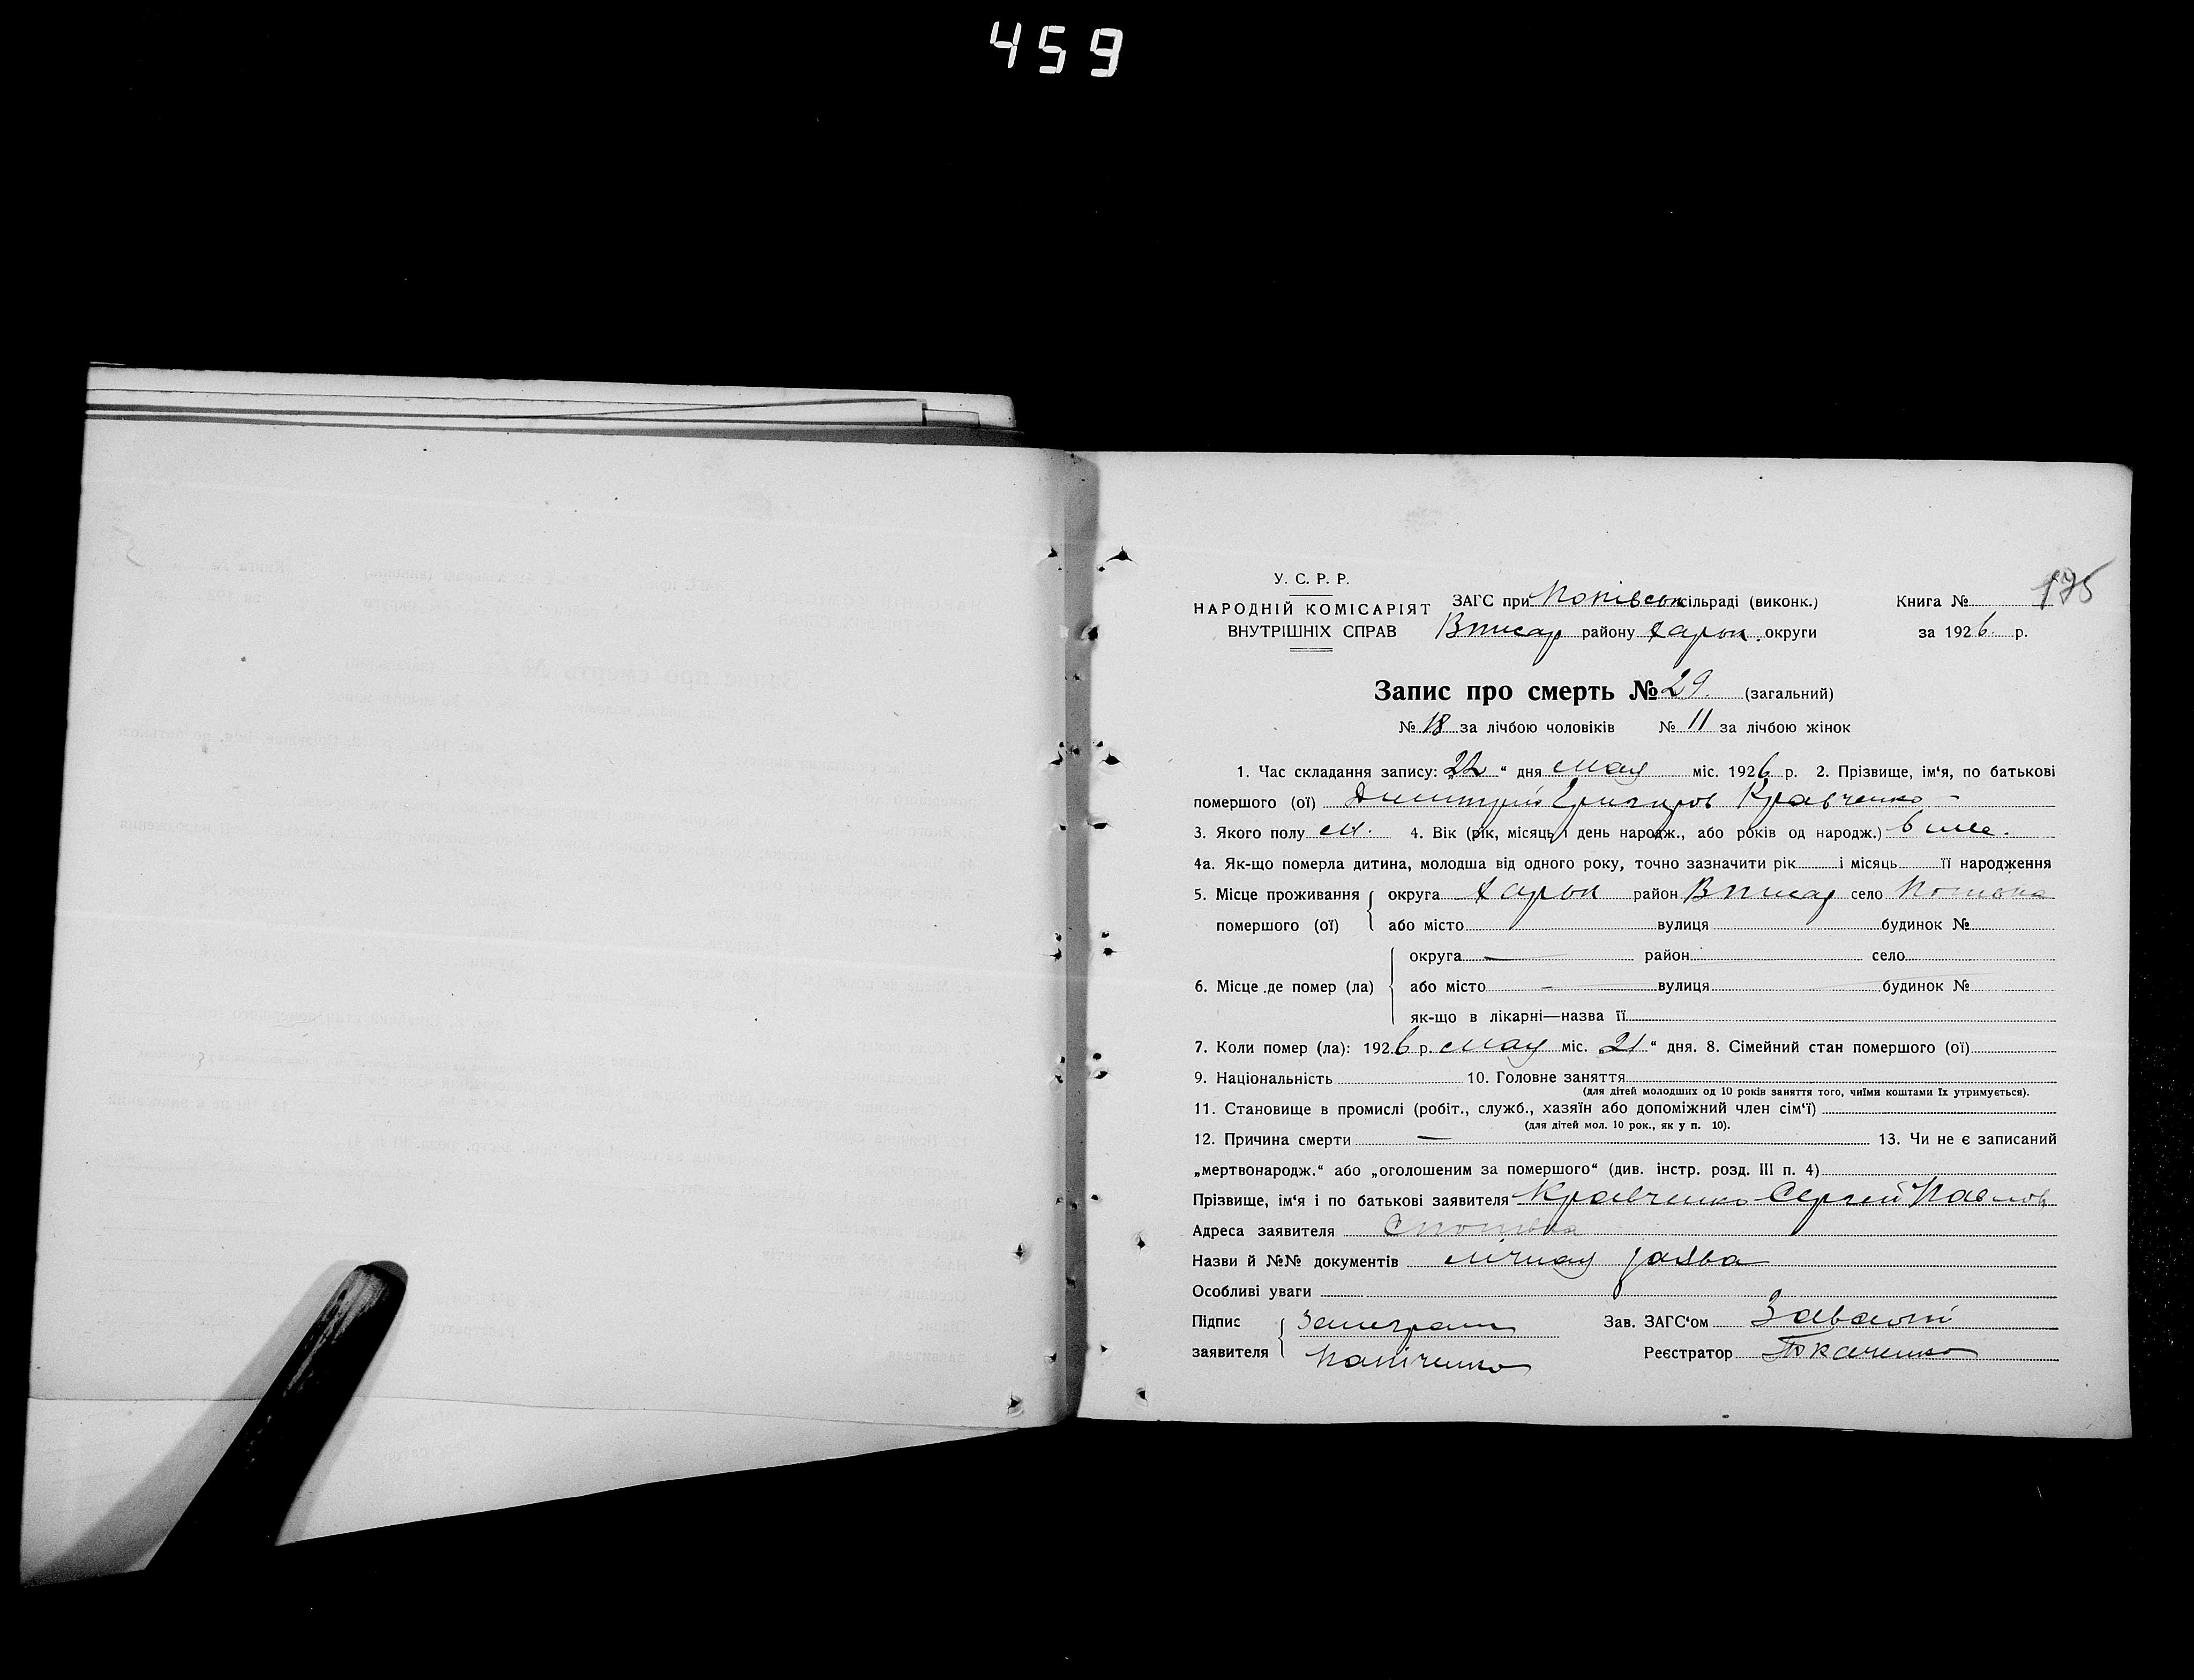 459
175
У. С. Р. Р.
НАРОДНІЙ КОМІСАРІЯТ
ВНУТРІШНІХ СПРАВ
ЗАГС при Попівськ сільраді (виконк.)
району Харьк. округи
Книга №
за 1926 р.
Запис про смерть № 29. (загальний)
№ 18 за лічбою чоловіків № 11 за лічбою жінок
1. Час складання запису: „22“ дня мая міс. 1926 р. 2. Прізвище, ім‘я, по батькові
помершого (ої) Димитрий Григоров Кравченко –
3. Якого полу м. 4. Вік (рік, місяць і день народж., або років од народж.) 6 ме.
4а. Як-що померла дитина, молодша від одного року, точно зазначити рік і місяць її народження
5. Місце проживання помершого (ої) { округа Харьк район село
або місто вулиця будинок №
6. Місце де помер (ла) { округа — район село
або місто – вулиця будинок №
як-що в лікарні—назва її
7. Коли помер (ла): 1926 р. мая міс. 21“ дня. 8. Сімейний стан помершого (ої)
9. Національність 10. Головне заняття
(для дітей молодших од 10 років заняття того, чиїми коштами їх утримується).
11. Становище в промислі (робіт., служб., хазяїн або допоміжний член сім‘ї)
(для дітей мол. 10 рок., як у п. 10).
12. Причина смерти — 13. Чи не є записаний
„мертвонародж.“ або „оголошеним за помершого“ (див. інстр. розд. III п. 4)
Прізвище, ім‘я і по батькові заявителя Кравченко Сергей Павлов
Адреса заявителя
Назви й №№ документів лічная заява
Особливі уваги
Підпис заявителя {
Зав. ЗАГС‘ом
Реєстратор Ткаченко